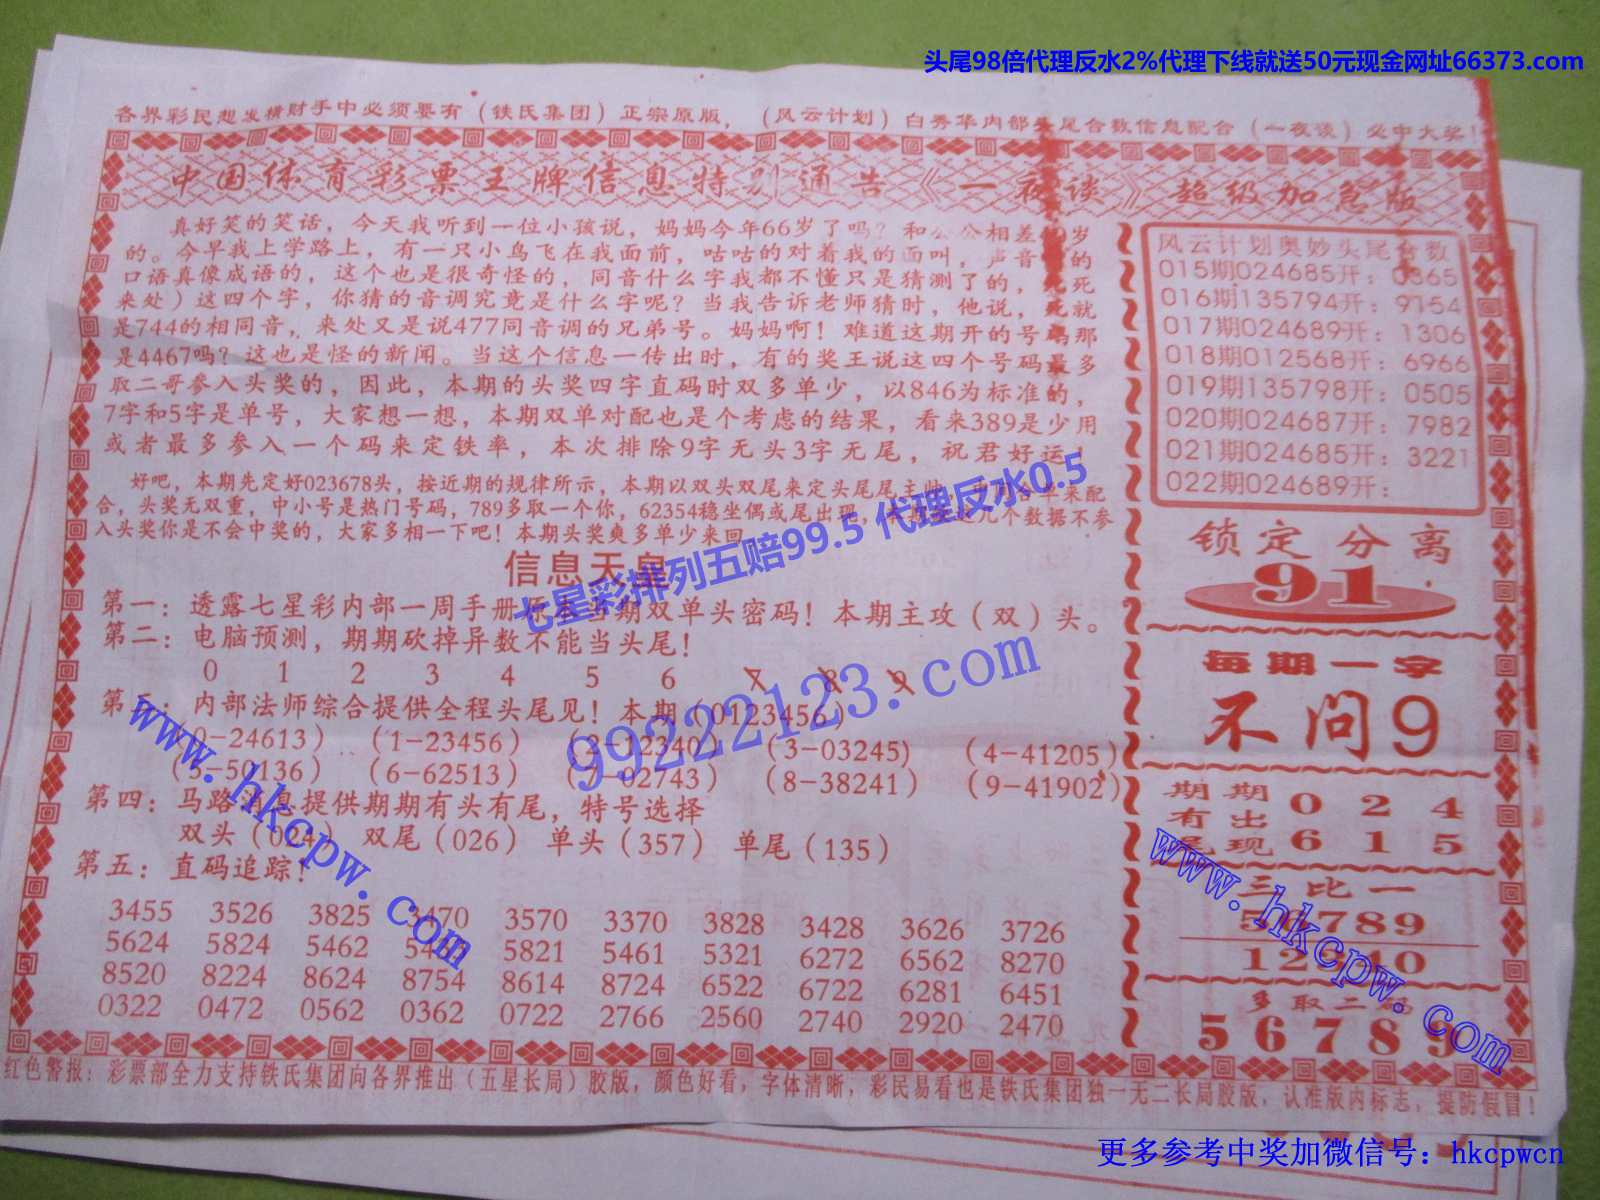 头尾98倍代理反水2%代理下线就送50元现金网址66373.com
各界彩民想发横财手中必须要有（铁氏集团）正宗原版，（风云计划）白秀华内部头尾合数信息配合（一夜谈）必中大奖！
中国体育彩票王牌信息特别通告《一夜谈》超级加急版
真好笑的笑话，今天我听到一位小孩说，妈妈今年66岁了吗？和公公相差 岁
的。今早我上学路上，有一只小鸟飞在我面前，咕咕的对着我的面叫，声音 的
口语真像成语的，这个也是很奇怪的，同音什么字我都不懂只是猜测了的， 死
来处）这四个字，你猜的音调究竟是什么字呢？当我告诉老师猜时，他说，死就
是744的相同音，来处又是说477同音调的兄弟号。妈妈啊！难道这期开的号码那
是4467吗？这也是怪的新闻。当这个信息一传出时，有的奖王说这四个号码最多
取二哥参入头奖的，因此，本期的头奖四字直码时双多单少，以846为标准的，
7字和5字是单号，大家想一想，本期双单对配也是个考虑的结果，看来389是少用
或者最多参入一个码来定铁率，本次排除9字无头3字无尾，祝君好运！
好吧，本期先定好023678头，按近期的规律所示，本期以双头双尾来定头尾尾主帅， 合单来配
合，头奖无双重，中小号是热门号码，789多取一个你，62354稳坐偶或尾出现， 这几个数据不参
入头奖你是不会中奖的，大家多相一下吧！本期头奖爽多单少来回
信息天皇
第一：透露七星彩内部一周手册 当期双单头密码！本期主攻（双）头。
第二：电脑预测，期期砍掉异数不能当头尾！
0 1 2 3 4 5 6 7 8 9
第三：内部法师综合提供全程头尾见！本期（0123456）
（0-24613） （1-23456） （2-12340） （3-03245） （4-41205）
（5-50136） （6-62513） （7-02743） （8-38241） （9-41902）
第四：马路消息提供期期有头有尾，特号选择
双头（024） 双尾（026） 单头（357） 单尾（135）
第五：直码追踪！
3455 3526 3825 3470 3570 3370 3828 3428 3626 3726
5624 5824 5462 5821 5461 5321 6272 6562 8270
8520 8224 8624 8754 8614 8724 6522 6722 6281 6451
0322 0472 0562 0362 0722 2766 2560 2740 2920 2470
风云计划奥妙头尾合数
015期024685开：0365
016期135794开：9154
017期024689开：1306
018期012568开：6966
019期135798开：0505
020期024687开：7982
021期024685开：3221
022期024689开：
锁定分离
91
每期一字
不问9
期期 0 2 4
有出
尾现 6 1 5
三比一
56789
12340
多取二码
567889
红色警报：彩票部全力支持铁氏集团向各界推出（五星长局）胶版，颜色好看，字体清晰，彩民易看也是铁氏集团独一无二长局胶版，认准版内标志，提防假冒！
七星彩排列五赔99.5 代理反水0.5
99222123.com
www.hkcpw.com
www.hkcpw.com
更多参考中奖加微信号：hkcpwcn